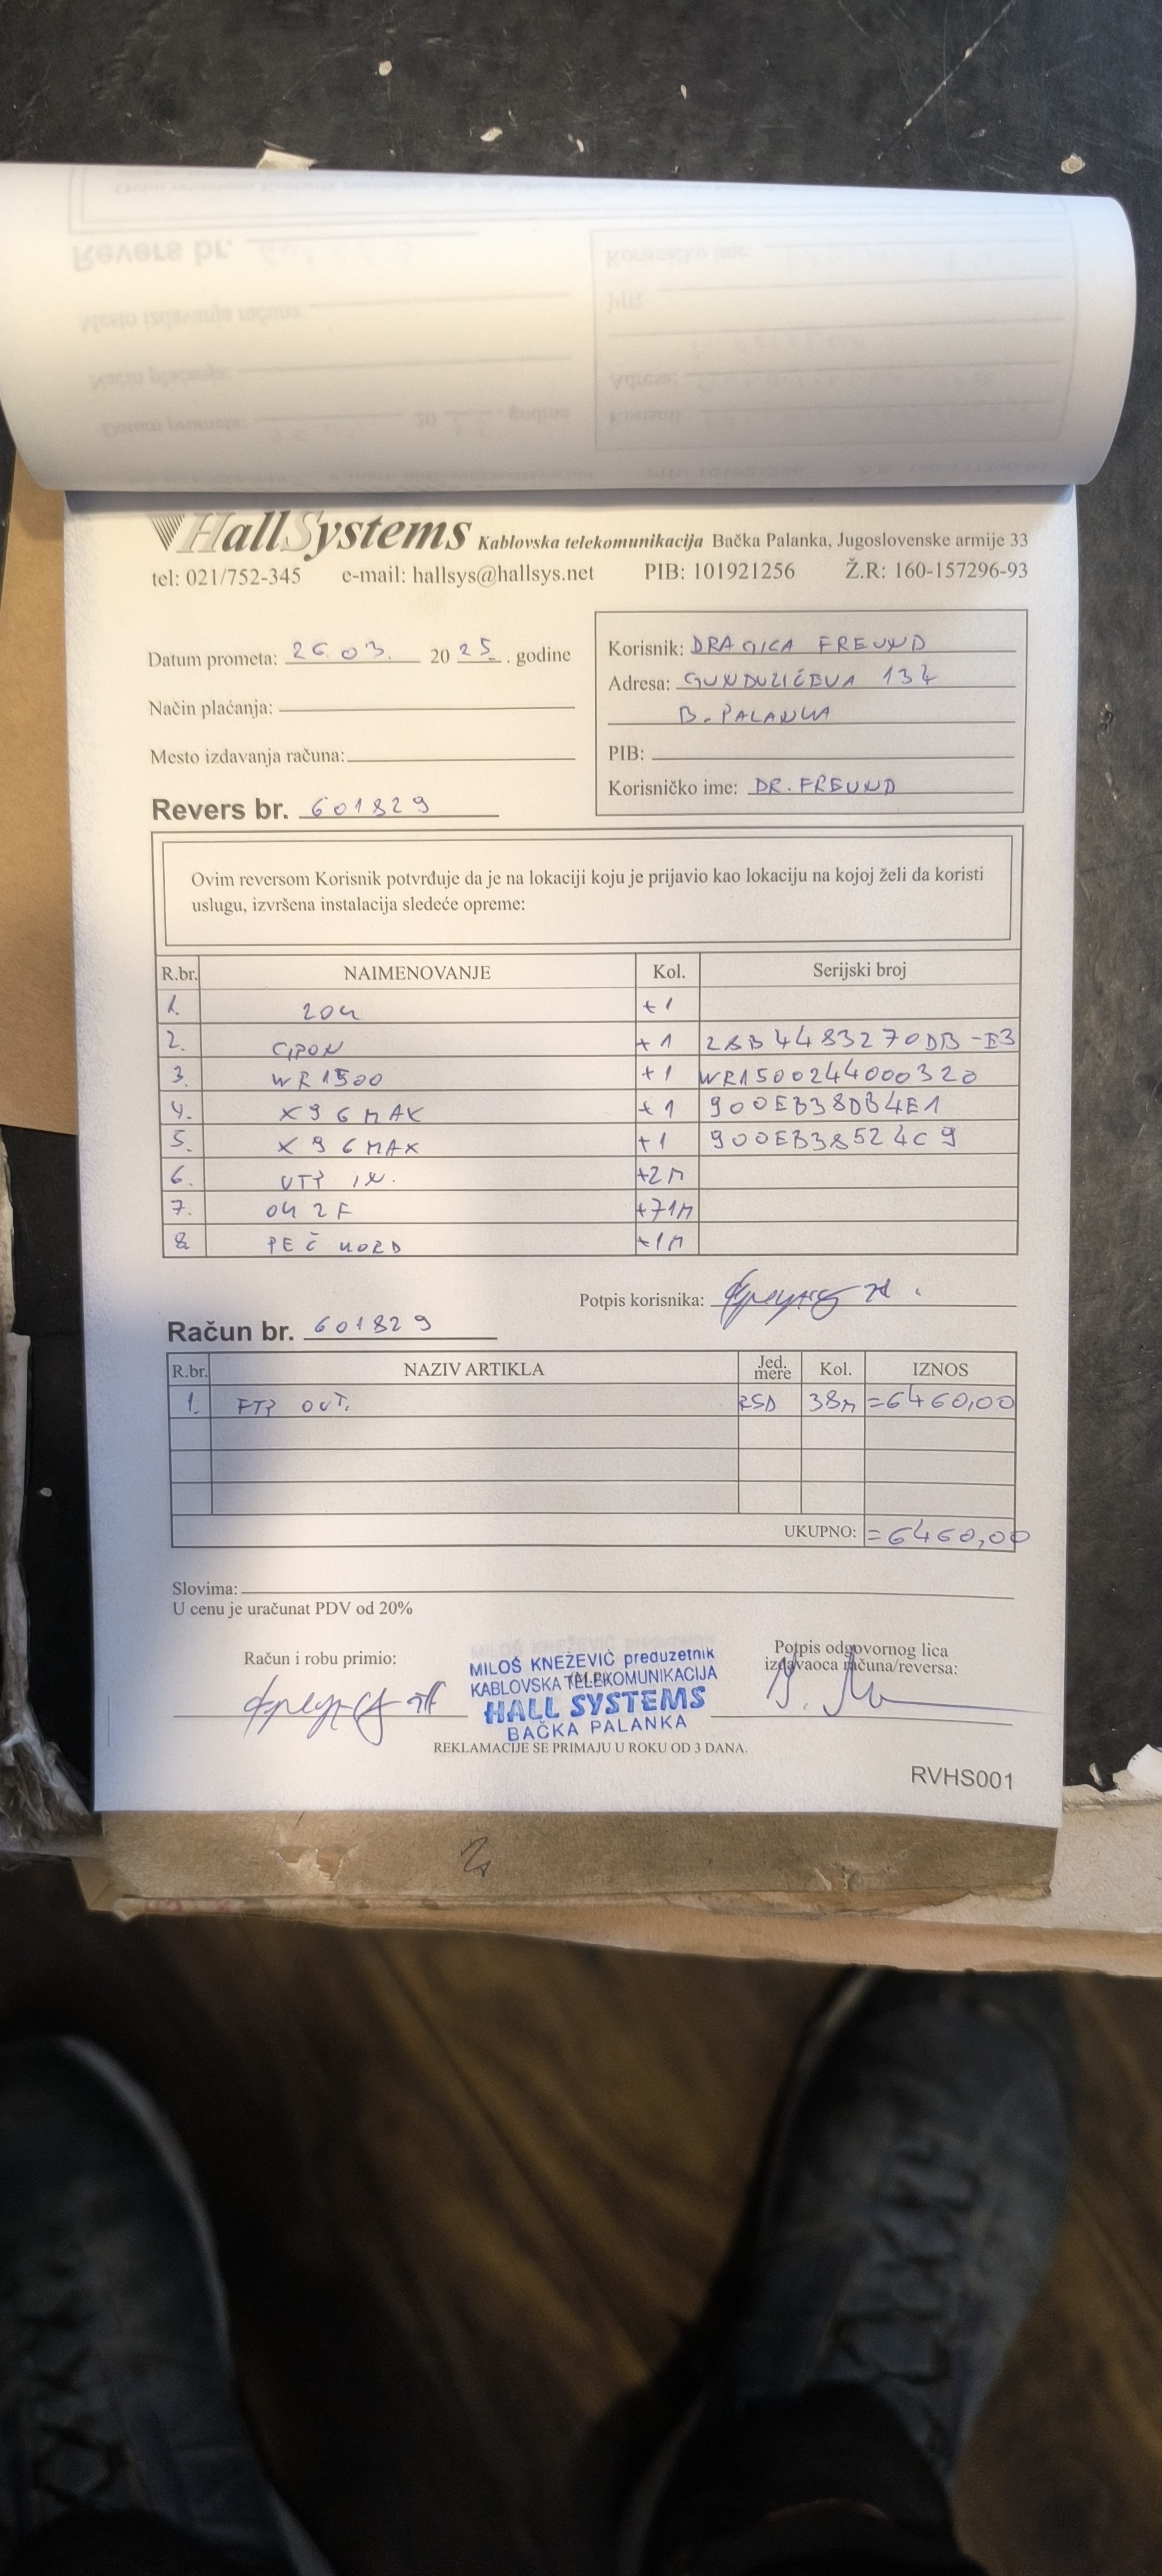 HallSystems Kablovska telekomunikacija Bačka Palanka, Jugoslovenske armije 33
tel: 021/752-345 e-mail: hallsys@hallsys.net PIB: 101921256 Ž.R: 160-157296-93
Datum prometa: 26.03. 2025. godine
Način plaćanja:
Mesto izdavanja računa:
Revers br. 601829
Korisnik: DRAGICA FREUND
Adresa: GUNDULIĆEVA 134
B. PALANKA
PIB:
Korisničko ime: DR.FREUND
Ovim reversom Korisnik potvrđuje da je na lokaciji koju je prijavio kao lokaciju na kojoj želi da koristi
uslugu, izvršena instalacija sledeće opreme:
R.br. NAIMENOVANJE Kol. Serijski broj
1. ZOK +1
2. GPON +1
3. WR1500 +1 WR1500244000320
4. X96MAX +1 900EB38DB4E1
5. X96MAX +1 900EB38524C9
6. UTP IN. +2M
7. OK 2F +71M
8 PEČ KORD +1M
Potpis korisnika:
Račun br. 601829
R.br. NAZIV ARTIKLA Jed. mere Kol. IZNOS
1. FTP OUT. RSD 38M =6460,00
UKUPNO: =6460,00
Slovima:
U cenu je uračunat PDV od 20%
Račun i robu primio:
MILOŠ KNEŽEVIĆ preduzetnik
KABLOVSKA TELEKOMUNIKACIJA
HALL SYSTEMS
BAČKA PALANKA
Potpis odgovornog lica
izdavaoca računa/reversa:
REKLAMACIJE SE PRIMAJU U ROKU OD 3 DANA.
RVHS001